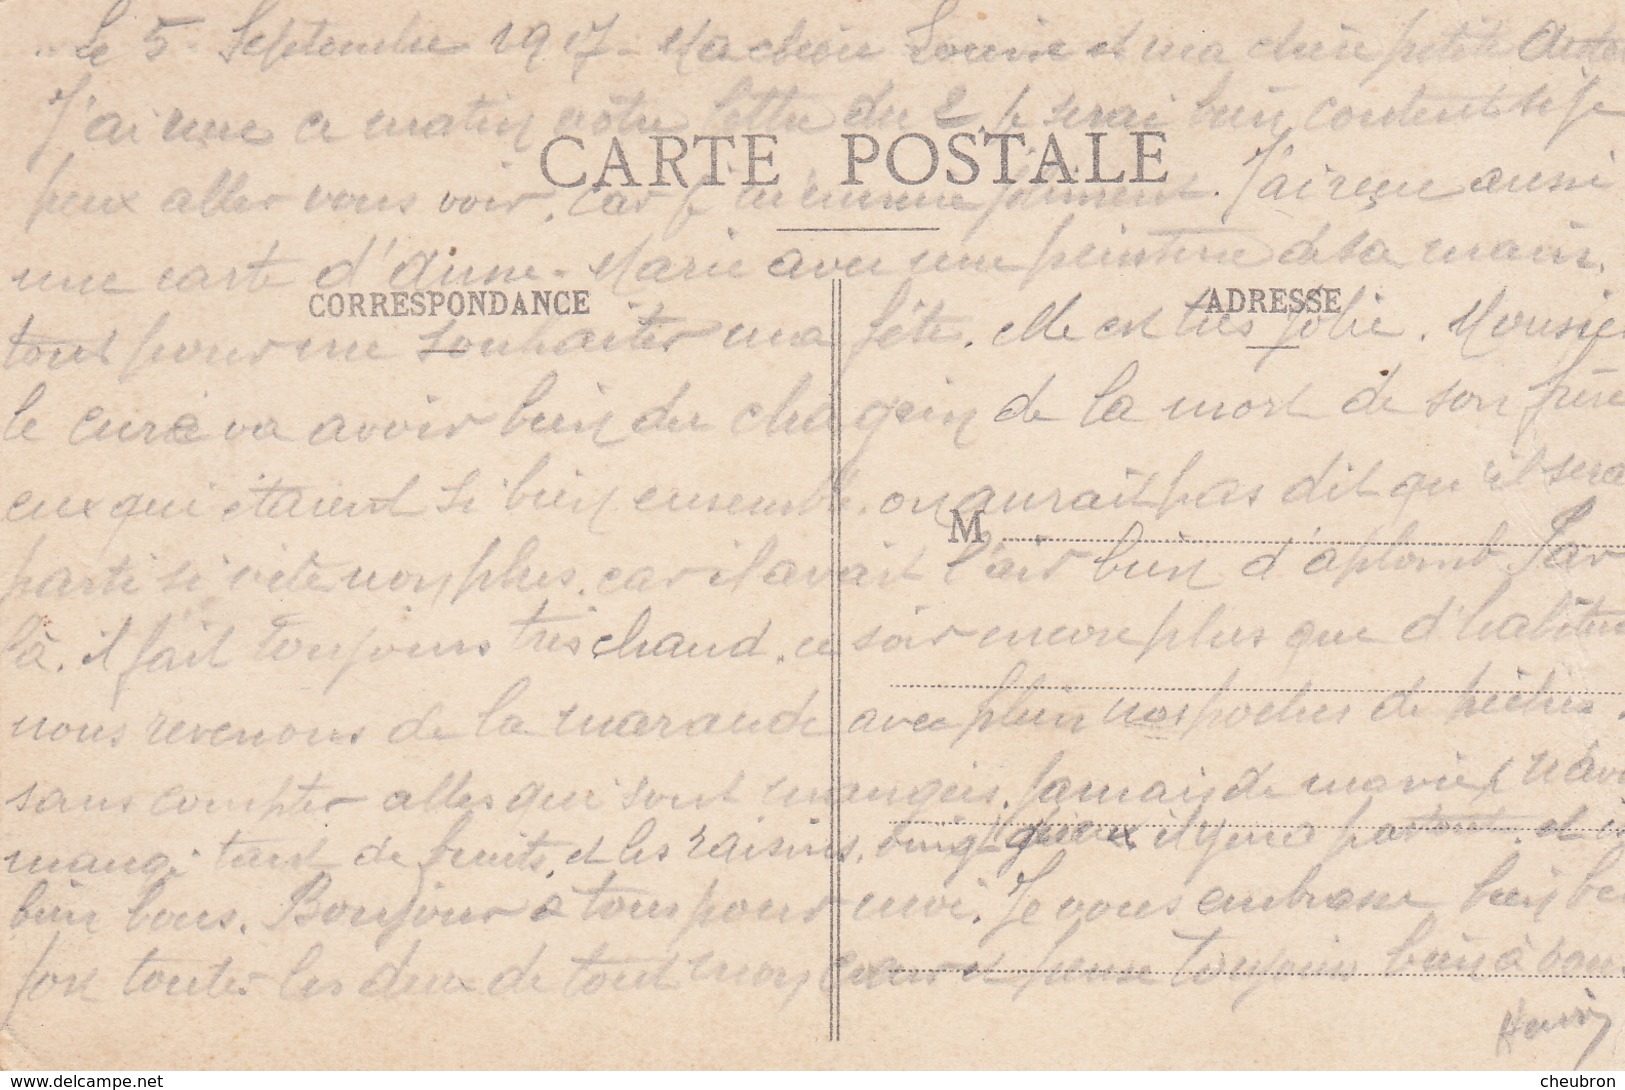 Le 5 Septembre 1917. Ma chère Louise et ma chère petite
J'ai reçue ce matin votre lettre du 2. je serai bien content si je
CARTE POSTALE
peux aller vous voir, car je m'ennuie J'ai reçue aussi
une carte d'Anne-Marie avec une peinture de sa main.
CORRESPONDANCE
ADRESSE
tout pour me souhaiter ma fête. elle est très jolie. Monsieur
le curé va avoir bien du chagrin de la mort de son frère
eux qui étaient si bien ensemble. on aurait pas dit qu'il sera
M
parti si vite non plus. car il avait l'air bien d'aplomb. Par
là. il fait toujours très chaud. ce soir encore plus que d'habitude
nous revenons de la maraude avec plein nos poches de pêches.
sans compter celles qui sont mangées. Jamais de ma vie j'navai
mangé tant de fruits. et les raisins. il y en a partout. et
bien bons. Bonjour à tous pour moi. Je vous embrasse bien bien
fort toutes les deux de tout mon cœur et pense toujours bien à vous
Henri
cartes-postales.delcampe.net
cheubron